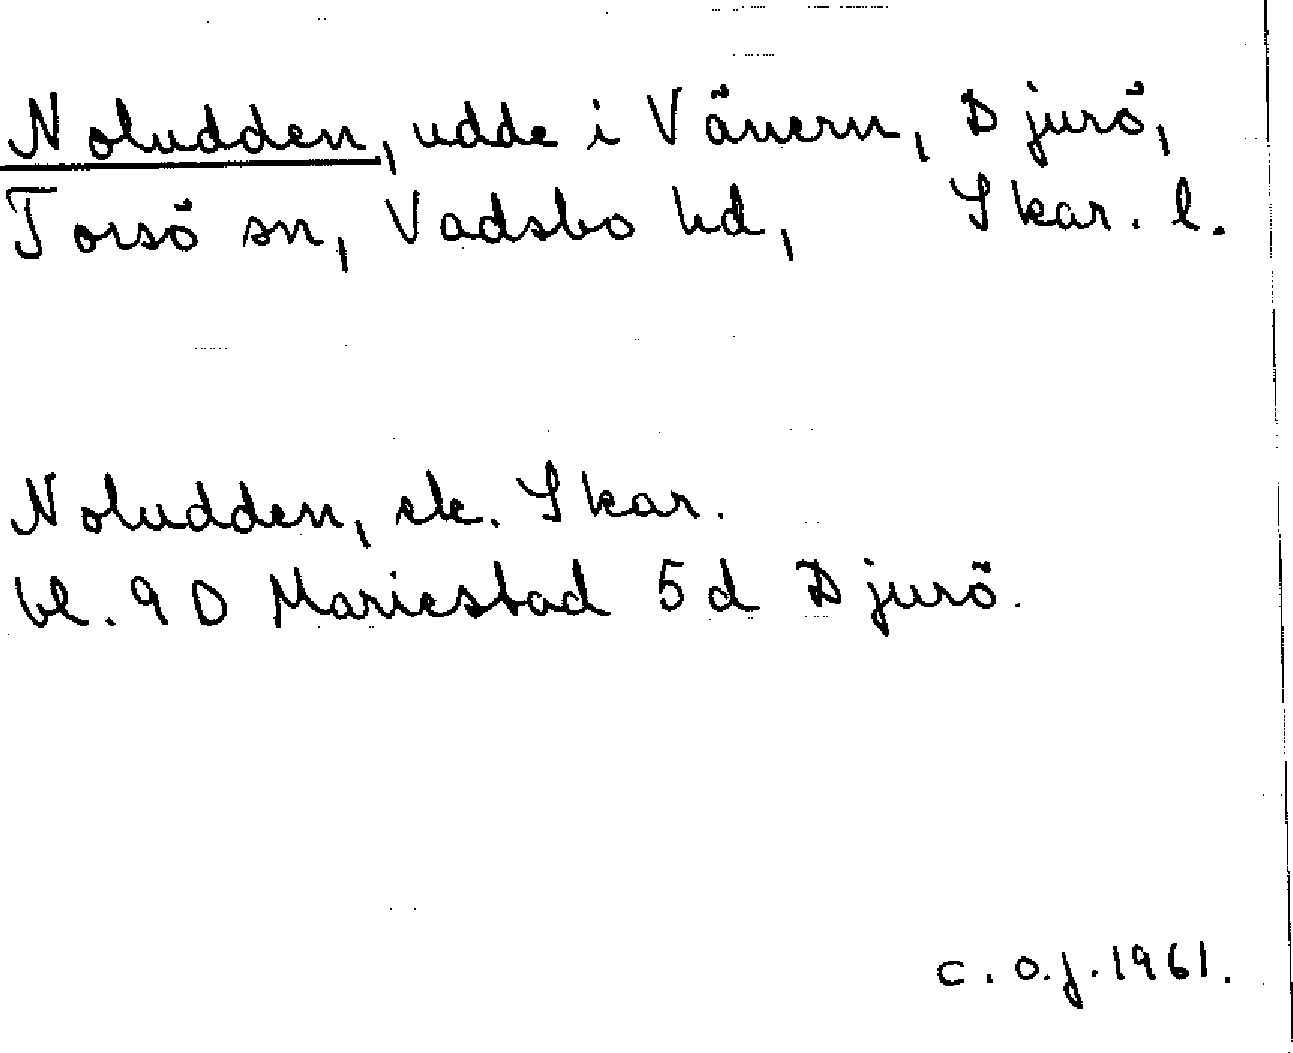 Noludden, udde i Vänern, Djurö,
Torsö sn, Vadsbo hd, Skar. l.
Noludden, ek. Skar.
bl. 9 D Mariestad 5 d Djurö.
C. O. J. 1961.